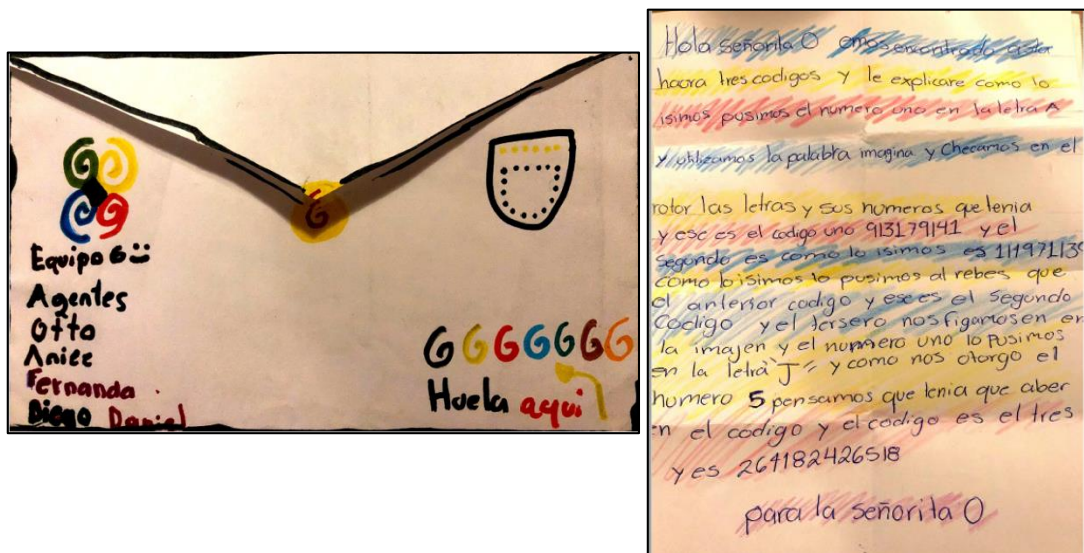 Equipo 6
Agentes
Otto
Aniee
Fernanda
Diego Daniel
G
G G G G G G G
Huela aqui
Hola señorita O emos encontrado
haora tres codigos y le explicare como lo
isimos pusimos el numero uno en la letra A
y utilicamos la palabra imagina y Checamos en el
rotor las letras y sus numeros que lenia
y ese es el codigo uno 913179141 y el
segundo es como lo isimos es 11197113
como lo isimos lo pusimos al rebes que
el anterior codigo y ese es el segundo
Codigo y el tersero nos figamos en
la imajen y el numero uno lo pusimos
en la letra J y como nos otorgo el
numero 5 pensamos que tenia que aber
en el codigo y el codigo es el tres
y es 264182426518
para la señorita O